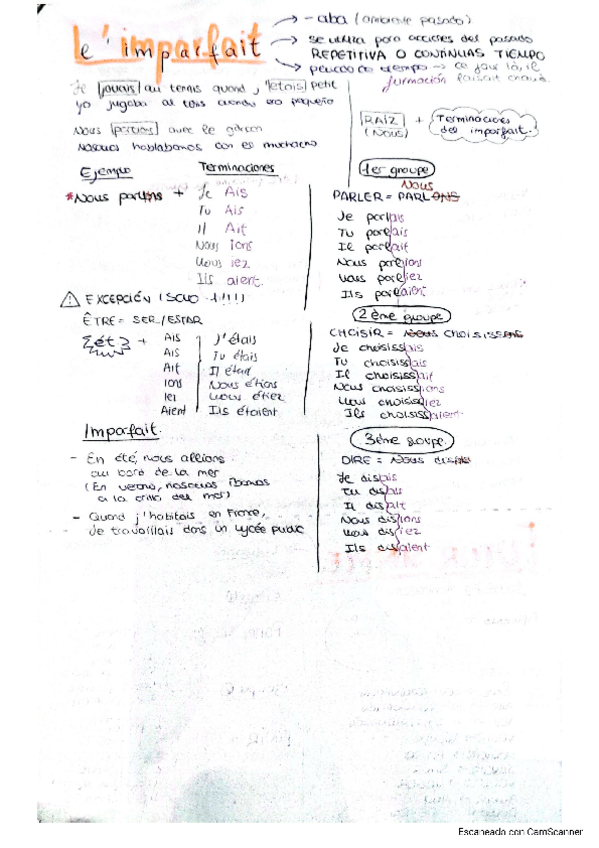 L'imparfait
→ - aba (ambiente pasado)
→ se utiliza para acciones del pasado
REPETITIVA O CONTINUAS TIEMPO
→ ce jour là, il faisait chaud
Je jouais au tennis quand j'étais petit
yo jugaba al tenis cuando era pequeño
Nous parlions avec le garçon
Nosotros hablabamos con el muchacho
formación
RAÍZ (NOUS) + Terminaciones del imparfait.
Ejemplo
Terminaciones
*Nous parlons +
Je Ais
Tu Ais
Il Ait
Nous ions
Vous iez
Ils aient.
⚠ EXCEPCIÓN (SOLO 1!!!!)
ÊTRE = SER/ESTAR
ét +
Ais J'étais
Ais Tu étais
Ait Il était
ions Nous étions
iez Vous étiez
Aient Ils étaient
Imparfait.
- En été, nous allions
au bord de la mer
(En verano, nosotros íbamos
a la orilla del mar)
- Quand j'habitais en France,
je travaillais dans un lycée public
1er groupe
Nous
PARLER = PARLONS
Je parlais
Tu parlais
Il parlait
Nous parlions
Vous parliez
Ils parlaient
2ème groupe
CHOISIR = Nous choisissons
Je choisissais
Tu choisissais
Il choisissait
Nous choisissions
Vous choisissiez
Ils choisissaient
3ème groupe.
DIRE = Nous disons
Je disais
Tu disais
Il disait
Nous disions
Vous disiez
Ils disaient
Escaneado con CamScanner